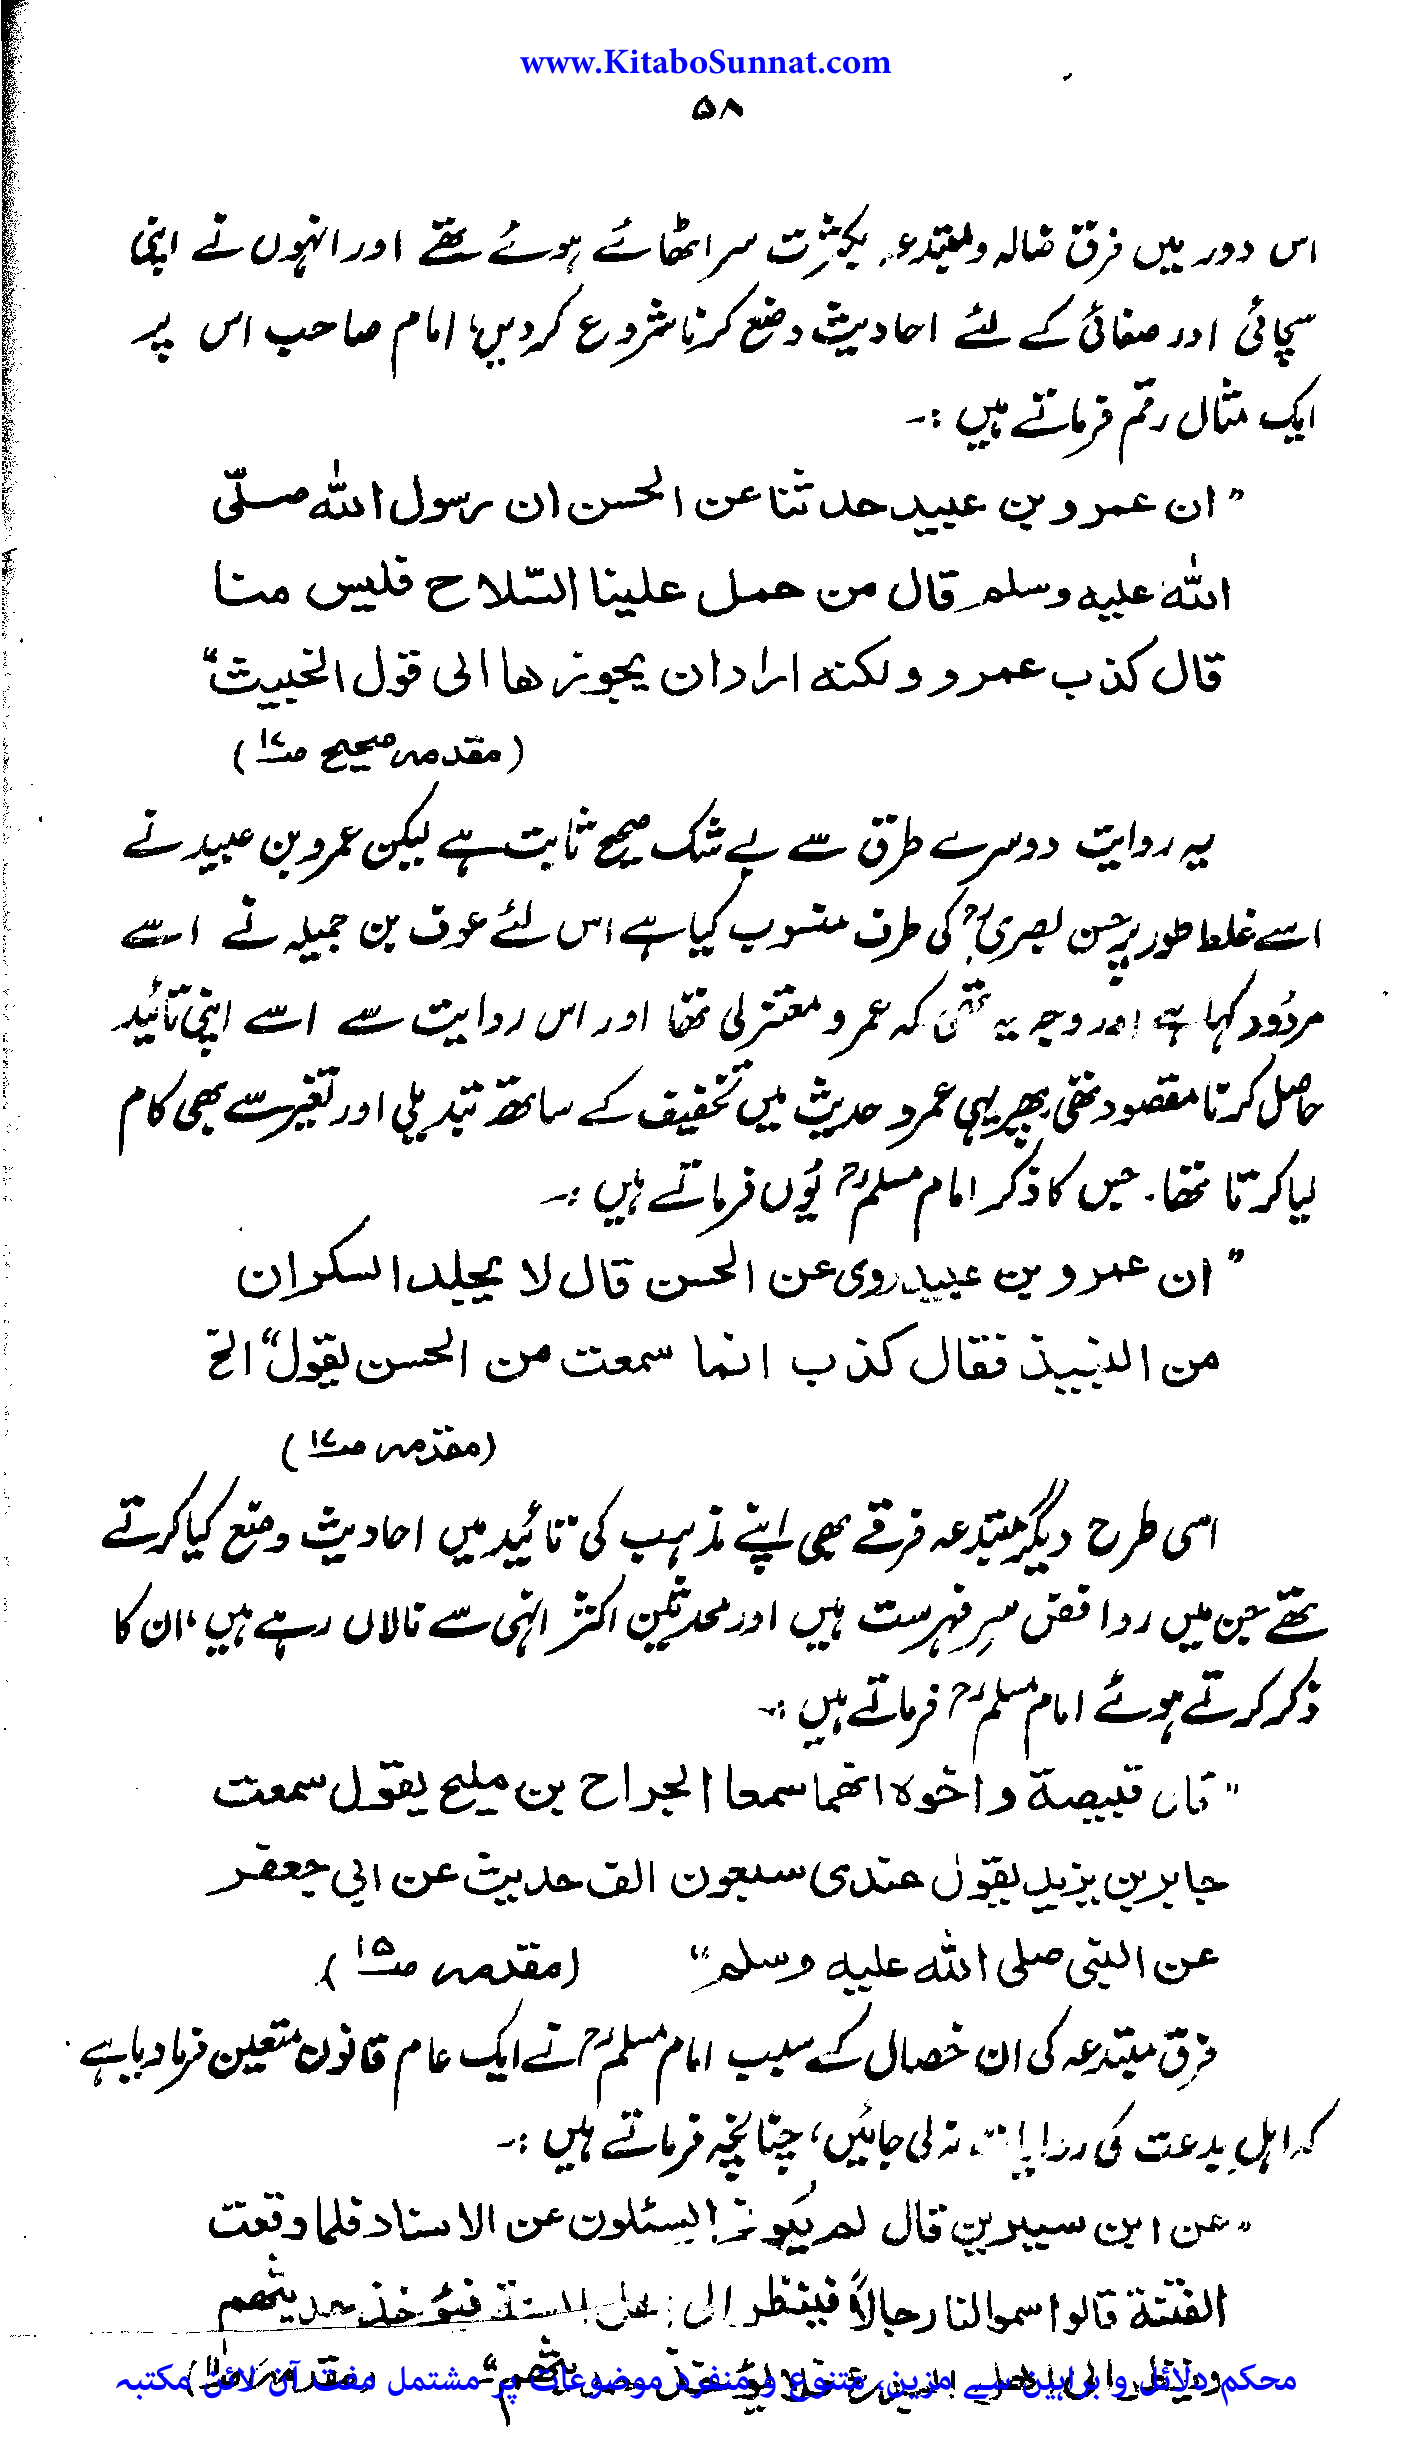 www.KitaboSunnat.com
۵۸
اس دور میں فرق ضالہ ومبتدعہ بکثرت سر اٹھائے ہوئے تھے اور انہوں نے اپنی
سچائی اور صفائی کے لئے احادیث وضع کرنا شروع کردیں، امام صاحب اس پر
ایک مثال رقم فرماتے ہیں :-
"ان عمرو بن عبید حدثنا عن الحسن ان رسول اللہ صلّی
اللہ علیہ وسلم قال من حمل علینا السّلاح فلیس منا
قال کذب عمرو ولکنہ اراد ان یجوزھا الی قول الخبیث"
(مقدمہ صحیح ص۱۷)
یہ روایت دوسرے طرق سے بے شک صحیح ثابت ہے لیکن عمرو بن عبید نے
اسے غلط طور پر حسن بصریؒ کی طرف منسوب کیا ہے اس لئے عوف بن جمیلہ نے اسے
مردُود کہا ہے اور وجہ یہ تھی کہ عمرو معتزلی تھا اور اس روایت سے اسے اپنی تائید
حاصل کرنا مقصود تھی پھر یہی عمرو حدیث میں تخفیف کے ساتھ تبدیلی اور تغیر سے بھی کام
لیا کرتا تھا۔ جس کا ذکر امام مسلمؒ یُوں فرماتے ہیں :-
"ان عمرو بن عبید روی عن الحسن قال لا یجلد السکران
من النبیذ فقال کذب انما سمعت من الحسن یقول" الخ
(مقدمہ ص۱۷)
اسی طرح دیگر مبتدعہ فرقے بھی اپنے مذہب کی تائید میں احادیث وضع کیا کرتے
تھے جن میں روافض سرِ فہرست ہیں اور محدثین اکثر انہی سے نالاں رہے ہیں، ان کا
ذکر کرتے ہوئے امام مسلمؒ فرماتے ہیں :-
"قال قبیصة واخوہ انھما سمعا الجراح بن ملیح یقول سمعت
جابر بن یزید یقول عندی سبعون الف حدیث عن ابی جعفر
عن النبی صلی اللہ علیہ وسلم" (مقدمہ ص۱۵)
فرق مبتدعہ کی ان خصال کے سبب امام مسلمؒ نے ایک عام قانون متعین فرما دیا ہے
کہ اہلِ بدعت کی روایات نہ لی جائیں، چنانچہ فرماتے ہیں :-
"عن ابن سیرین قال لم یکونوا یسئلون عن الاسناد فلما وقعت
الفتنة قالوا سموا لنا رجالاً فینظر الی اھل السنة فیؤخذ حدیثھم
وینظر الی اھل البدع فلا یؤخذ حدیثھم" (مقدمہ ص۱۱)
محکم دلائل و براہین سے مزین، متنوع و منفرد موضوعات پر مشتمل مفت آن لائن مکتبہ